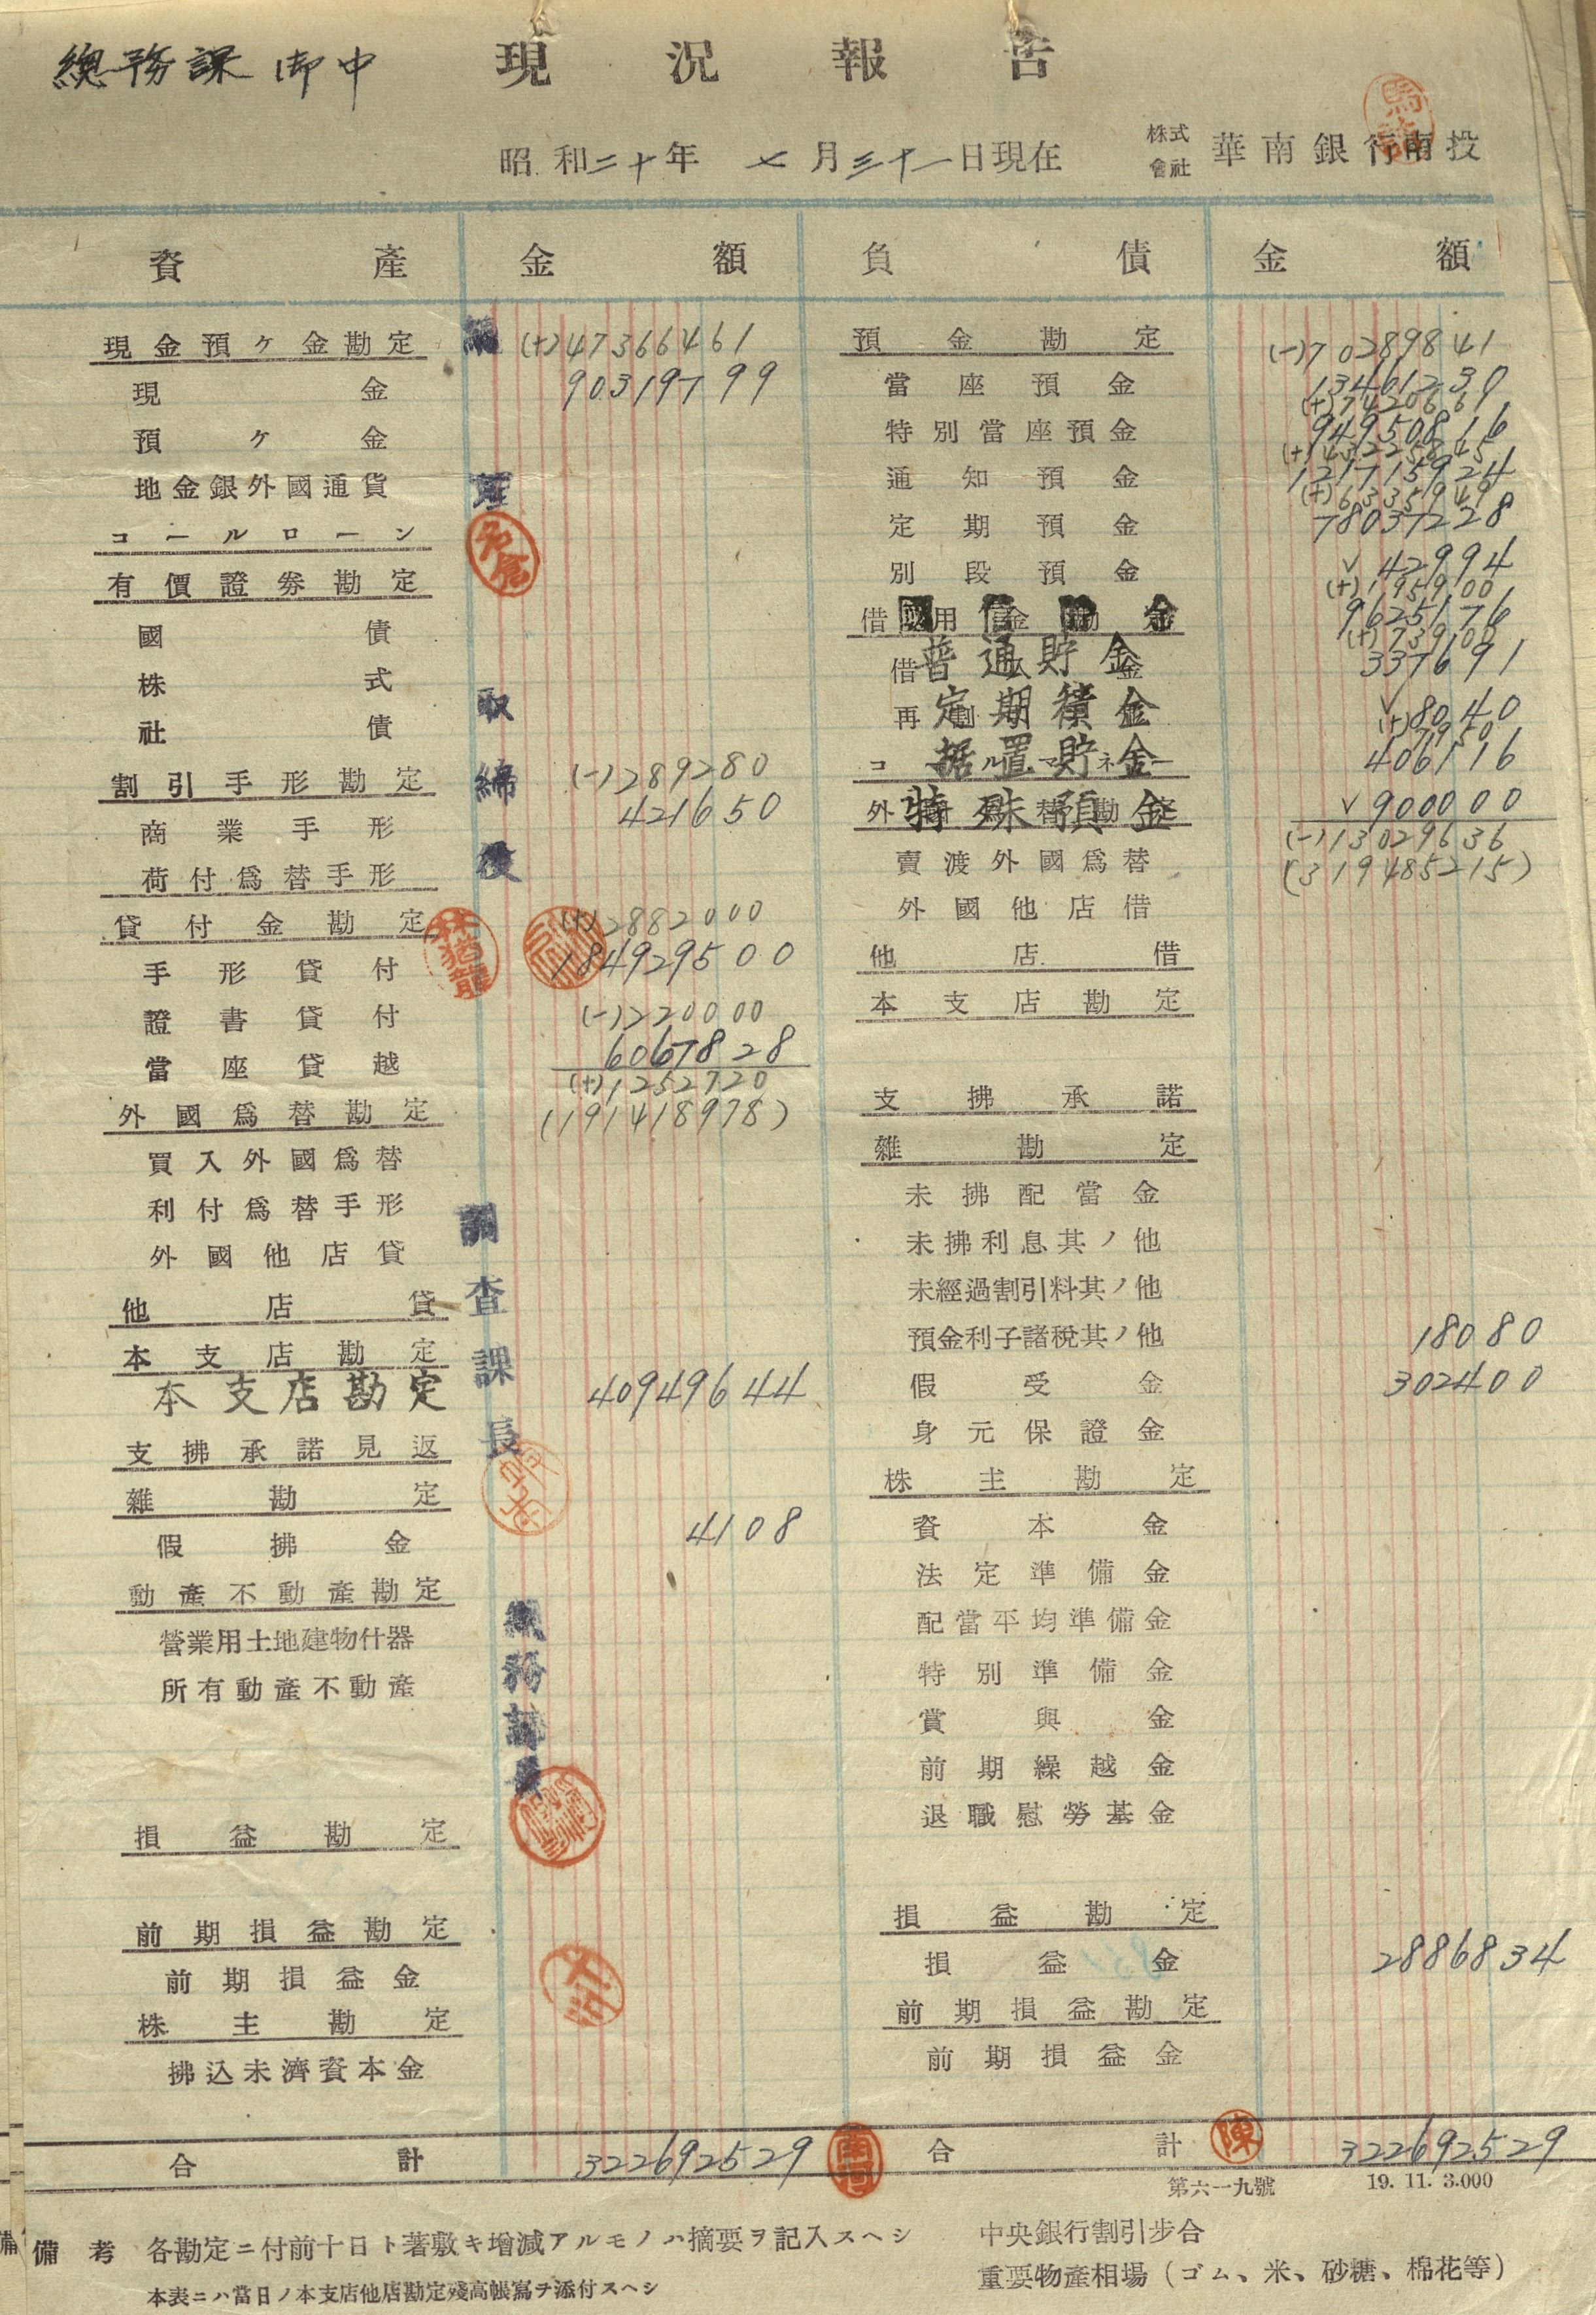 總務課御中
現況報告
昭和二十年七月三十一日現在
株式會社 華南銀行南投
資產 金額 負債 金額
現金預ヶ金勘定 (+)47366461
現金 90319799
預ヶ金
地金銀外國通貨
コールローン
有價證券勘定
國債
株式
社債
割引手形勘定 (-)289280
商業手形 421650
荷付爲替手形
貸付金勘定 (+)2882000
手形貸付 184929500
證書貸付 (-)220000
當座貸越 6067828
(+)1252720
外國爲替勘定 (191418978)
買入外國爲替
利付爲替手形
外國他店貸
他店貸
本支店勘定
本支店勘定 40949644
支拂承諾見返
雜勘定
假拂金 4108
動產不動產勘定
營業用土地建物什器
所有動產不動產
損益勘定
前期損益勘定
前期損益金
株主勘定
拂込未濟資本金
合計 322692529
取締役
調查課長
總務課長
林猶龍
預金勘定 (-)70289841
當座預金 13461230
(+)7420661
特別當座預金 94950816
通知預金 121715924
(+)6335949
定期預金 78037228
別段預金 ∨42994
(+)195900
9625176
(+)73900
普通貯金 337691
定期積金 ∨8040
据置貯金 406116
特殊預金 ∨900000
(-)13029636
賣渡外國爲替 (319485215)
外國他店借
他店借
本支店勘定
支拂承諾
雜勘定
未拂配當金
未拂利息其ノ他
未經過割引料其ノ他
預金利子諸稅其ノ他 18080
假受金 302400
身元保證金
株主勘定
資本金
法定準備金
配當平均準備金
特別準備金
賞與金
前期繰越金
退職慰勞基金
損益勘定
損益金 2886834
前期損益勘定
前期損益金
合計 陳 322692529
第六一九號 19. 11. 3.000
備考 各勘定ニ付前十日ト著敷キ增減アルモノハ摘要ヲ記入スヘシ
本表ニハ當日ノ本支店他店勘定殘高帳寫ヲ添付スヘシ
中央銀行割引步合
重要物產相場（ゴム、米、砂糖、棉花等）